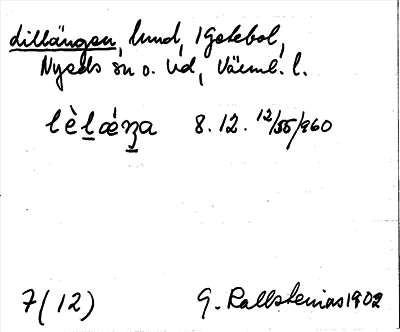 dillängen, lund, 1 Getebol,
Nyeds sn o. hd, Värml. l.
lèlǽŋa 8. 12. 12/55/960
7(12) G. Kallstenius 1902